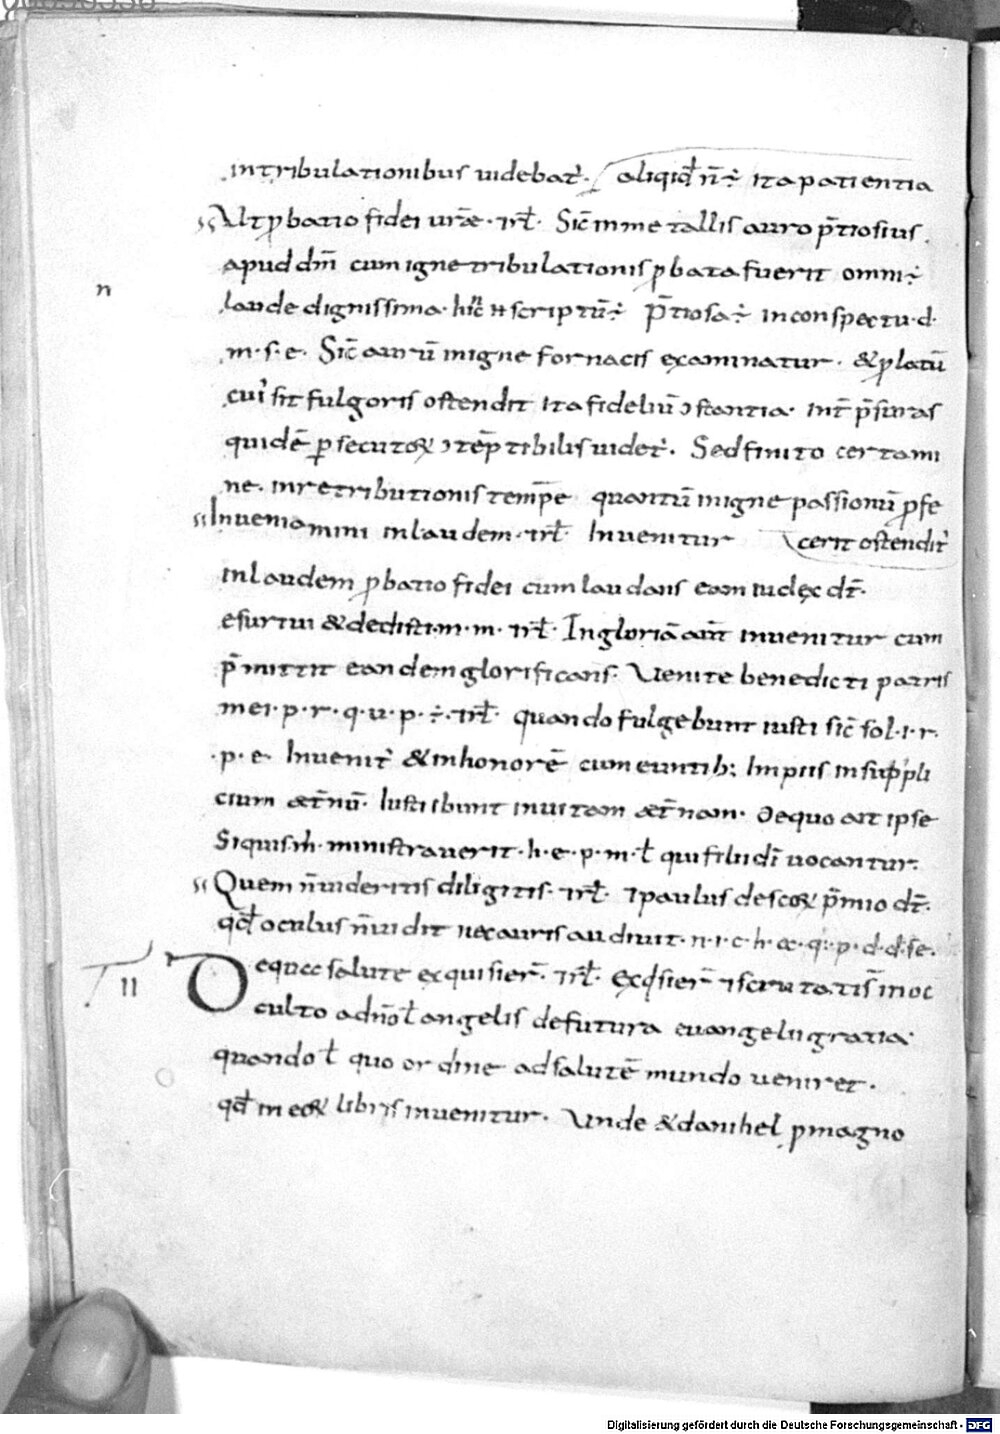 intribulationibus uidebat᷑. aliqid̄ n̄ ÷ Ita patientia
Ut ꝓbatio fidei ur̄æ · ꝉrł · Sic̄ in metallis auro p̄tiosius.
apud dm̄ cum igne tribulationis ꝓbata fuerit omni ÷
n
laude dignissima · hic̄ scriptū ÷ p̄tiosa ÷ inconspectu · d ·
m · s · e · Sic̄ aurū inigne fornacis examinatur · & ꝓlatū
cui᷑ sit fulgoris ostendit Ita fideliū ↄstantia · Int̄ p̄suras
quidē ꝑsecutoꝝ ↄtēptibilis uidet᷑. Sed finito certami
ne. inretributionis tēmp̄e quantū inigne passionū ꝓfe
Inueniamini inlaudem · ꝉrł · Inuenitur cerit ostendit᷑
inlaudem ꝓbatio fidei cum laudans eam iudex dt̄.
esuriui & dedisti · m · m · ꝉrł · In gloriā aūt inuenitur cum
p̄mittit eandem glorificans. Venite benedicti patris
mei · p · r · q · u · p · ÷ · ꝉrł · quando fulgebunt iusti sic̄ sol · i · r ·
· p · e Inuenit᷑ & inhonorē cum euntib; Impiis insuppli
cium æt̄nū. Iusti ibunt inuitam æt̄nam. De quo ait ipse
Siquis m̄ · ministrauerit · h · e · p · m · ł qui filii di᷑ uocantur.
Quem n̄uideritis diligitis · ꝉrł · ⁊ paulus de scōꝝ p̄mio dt̄.
qd̄ oculus n̄uidit nec auris audiuit · n · i · c · h · a · q · p · d · d · se ·
II
De qua salute exquisier̄ · ꝉrł · Exq̄sier̄ ⁊ scrutatis̄ inoc
culto adn̄o ł angelis de futura euangelii gratia
quando ł quo ordine ad salutē mundo ueniret ·
qd̄ in eoꝝ libris inuenitur. Unde & danihel ꝓ magno
Digitalisierung gefördert durch die Deutsche Forschungsgemeinschaft - DFG